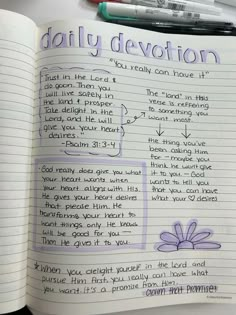 daily devotion
"You really can have it"
"Trust in the Lord &
do good. Then you
will live safely in
the land & prosper.
Take delight in the
Lord, and He will
give you your heart
desires."
-Psalm 37:3-4
The "land" in this
verse is reffering
to something you
want most.
the thing you've
been asking Him
for - maybe you
think he won't give
it to you - God
wants to tell you
that you can have
what your ♡ desires
God really does give you what
your heart wants when
your heart aligns with His.
He gives your heart desires
that please Him. He
transforms your heart to
want things only He knows
will be good for you —
Then He gives it to you.
*When you delight yourself in the Lord and
pursue Him first, you really can have what
you want. It's a promise from Him.
Claim that Promise!